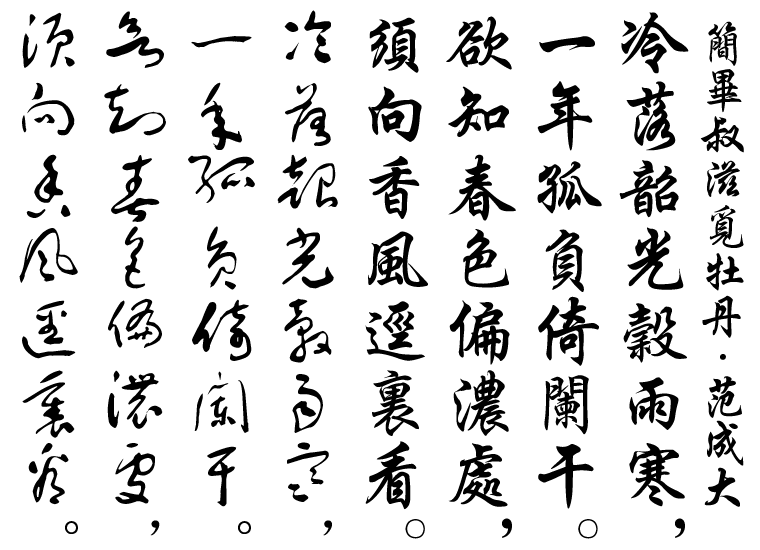 簡畢叔滋覓牡丹・范成大
冷落韶光穀雨寒，
一年孤負倚闌干。
欲知春色偏濃處，
須向香風逕裏看。
冷落韶光穀雨寒，
一年孤負倚闌干。
欲知春色偏濃處，
須向香風逕裏看。